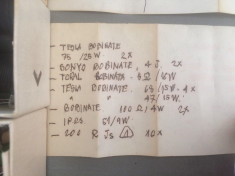 - TESLA BOBINATE
75 /25W 2X
- SONYO BOBINATE, 4J 2X
- TORAL BOBINATA - 8 Ω / 15W
- TESLA BOBINATA - 68 /15W - 4X
" " 47 / 15W.
- BOBINATE 100 Ω / 4W 2X
- 1R05 5V/9W
- 200 Ω JS ⚠ 10X